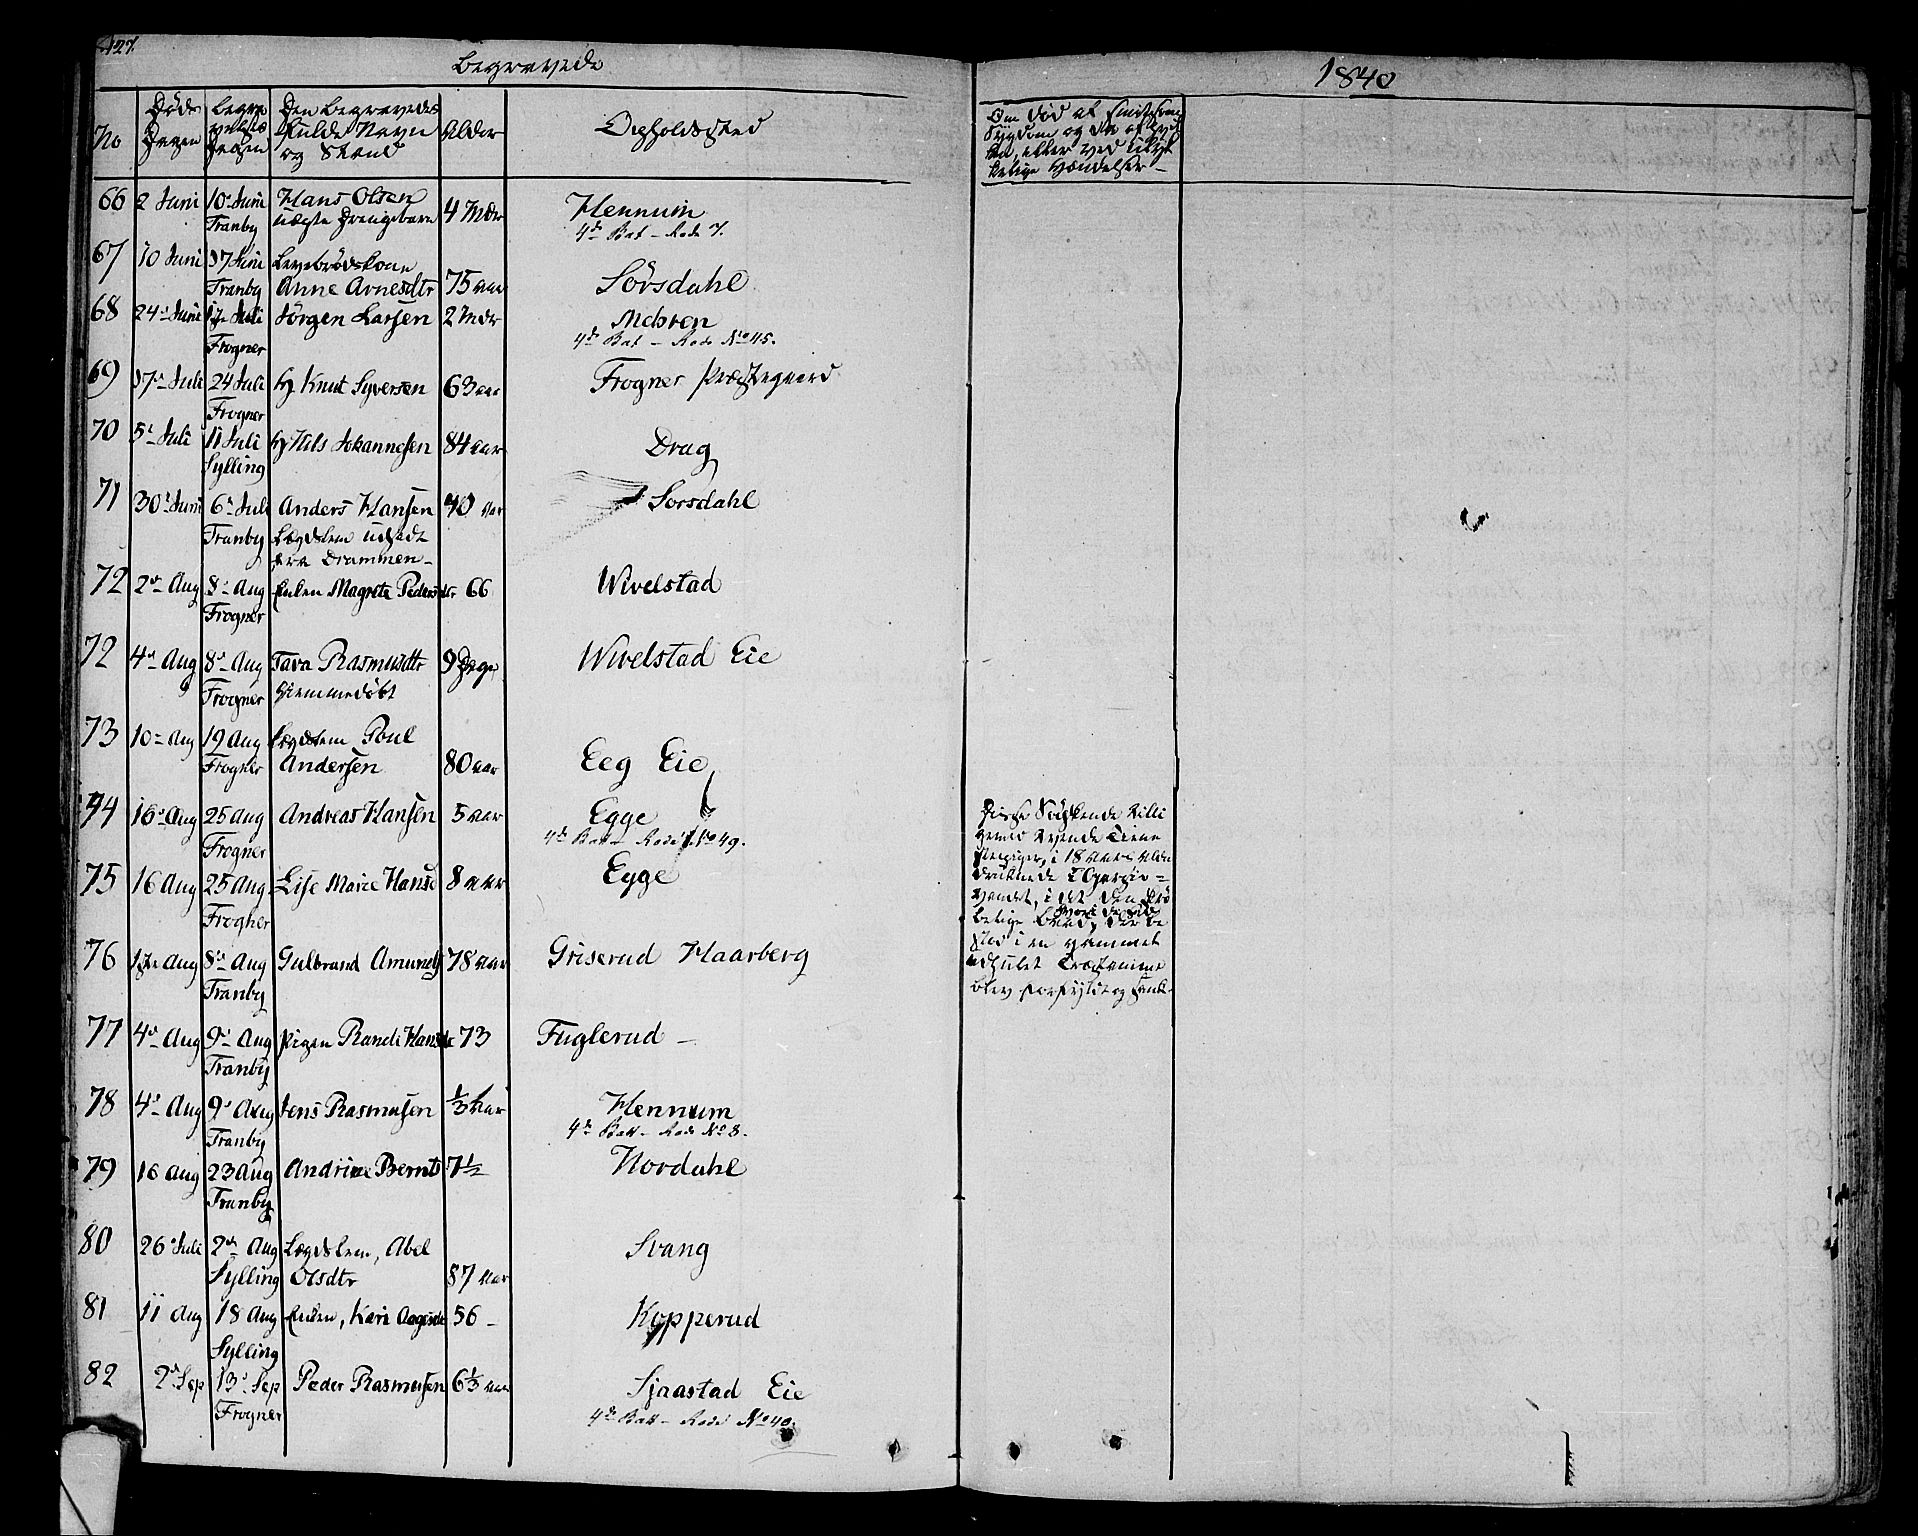 127.
Begravede
1840
No
Døds Dagen
Begravelses Dagen
Den Begravedes
Fulde Navn
og Stand
Alder
Opholdssted
Om død af smitsom
Sygdom og da af hvil
ken, eller ved ulyk
kelige Hændelser
66 2 Juni 10 Juni Hans Olsen 4 Mdr Hennum
Tranby uægte Drengebarn 4de Bat - Rode 7.
67 10 Juni 17 Juni Levebrødskone
Tranby Anne Arnesdtr 75 aar Sørsdahl
68 24 Juni Juli Jørgen Larsen 2 Mdr Mdsren
Frogner 4de Bat - Rode No 45.
69 17 Juli 24 Juli Knut Syversen 63 aar Frogner Præstegaard
Frogner
70 5 Juli 11 Juli Nils Johannesen 84 aar Drag
Sylling
71 30 Juni 6 Juli Anders Hansen 40 aar Sorsdahl
Tranby Lægdslem udsadt
fra Drammen
72 2 Aug 8 Aug Enken Magrete Pedersdtr 66 Wivelstad
Frogner
72 4 Aug 8 Aug Tara Rasmusdtr 9 Dage Wivelstad Eie
Frogner hiemmedøbt
73 10 Aug 19 Aug Lægdslem Poul
Frogner Andersen 80 aar Eeg Eie
74 16 Aug 25 Aug Andreas Hansen 5 aar Egge
Frogner 4de Batt - Rode No 49.
Disse Sødskende
18 aars Alder
druknede
vandet, i det den
i en gammel
udhulet
blev og sank
75 16 Aug 25 Aug Lise Marie Hansd 8 aar Egge
Frogner
76 1ste Aug 8 Aug Gulbrand Amunds 78 aar Griserud Haarberg
Tranby
77 4 Aug 9 Aug Pigen Randi Hansdr 73 Fuglerud -
Tranby
78 4 Aug 9 Aug Jens Rasmusen 1/3 Aar Hennum
Tranby 4de Batt - Rode No 8.
79 16 Aug 23 Aug Andrine Bernts 7 1/2 Nordahl
Tranby
80 26 Juli 2 Aug Lægdslem, Abel Svang
Sylling Olsdtr 87 aar
81 11 Aug 18 Aug Enken, Kari Aagesdr 56 - Kopperud
Sylling
82 2 Sep 13 Sep Peder Rasmusen 6 1/3 aar Sjaastad Eie
Frogner 4de Batt - Rode No 40.